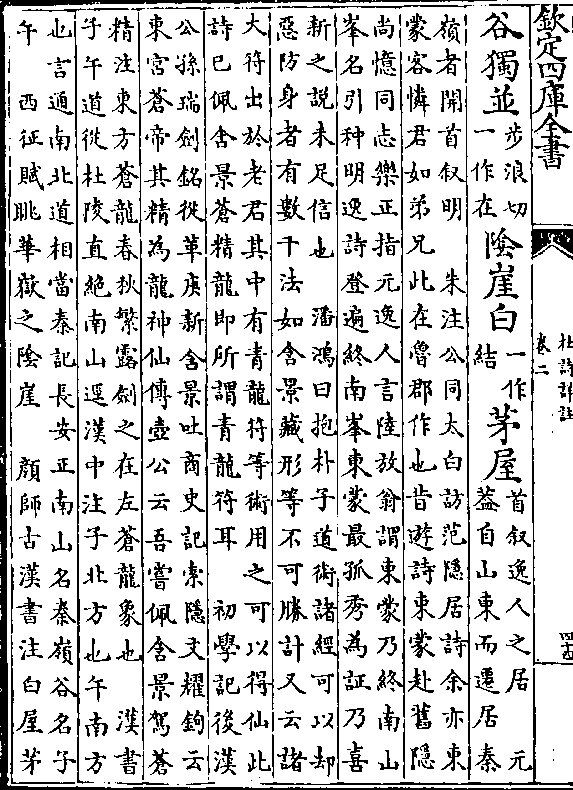 欽定四庫全書
杜詩詳註
卷二
谷獨並步浪切一作在陰崖白一作結茅屋首叙逸人之居 元
蓋自山東而遷居秦
嶺者開首叙明 朱注公同太白訪范隱居詩余亦東
蒙客憐君如弟兄此在魯郡作也昔遊詩東蒙赴舊隱
尚憶同志樂正指元逸人言陸放翁謂東蒙乃終南山
峯名引种明逸詩登遍終南峯東蒙最孤秀為証乃喜
新之説未足信也 潘鴻曰抱朴子道術諸經可以却
惡防身者有數千法如含景藏形等不可勝計又云諸
大符出於老君其中有青龍符等術用之可以得仙此
詩已佩含景蒼精龍即所謂青龍符耳 初學記後漢
公孫瑞劍銘從革庚新含景吐商史記索隱文耀鉤云
東宮蒼帝其精為龍神仙傳壺公云吾嘗佩含景駕蒼
精注東方蒼龍春秋繁露劍之在左蒼龍象也 漢書
子午道從杜陵直絶南山逕漢中注子北方也午南方
也言通南北道相當秦記長安正南山名秦嶺谷名子
午 西征賦眺華嶽之陰崖 顔師古漢書注白屋茅